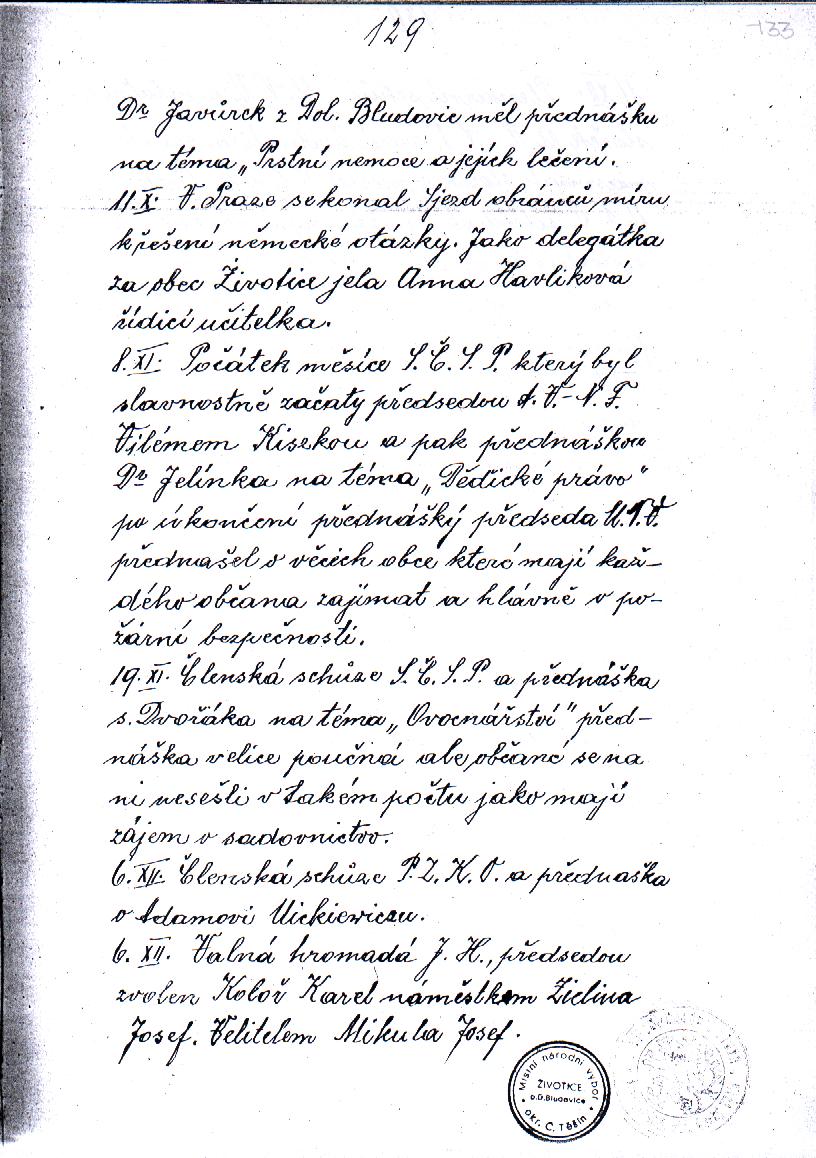 129
133
Dr Javůrek z Dol. Bludovic měl přednášku
na téma „Prstní nemoce a jejich léčení.
11.X. V. Praze se konal Sjezd obránců míru
k řešení německé otázky. Jako delegátka
za obec Životice jela Anna Havlíková
řídící učitelka.
8.XI. Počátek měsíce S.Č.S.P. který byl
slavnostně začatý předsedou A.V.-N.F.
Vilémem Kisekou a pak přednáškou
Dr Jelínka na téma „Dědické právo"
po úkončení přednášký předseda M.N.V.
přednašel o věcích obce které mají kaž-
dého občana zajímat a hlávně o po-
žární bezpečnosti.
19.XI. Členská schůze S.Č.S.P. a přednáška
s. Dvořáka na téma „Ovocnářství" před-
náška velice poučná ale občané se na
ni nesešli v takém počtu jako mají
zájem o sadovnictvo.
6.XII. Členská schůze P.Z.K.O. a přednaška
o Adamovi Mickiewiczu.
6. XII. Valná hromadá J. H., předsedou
zvolen Kolář Karel náměstkem Zielina
Josef. Velitelem Mikula Josef.
Místní národní výbor
ŽIVOTICE
o.D.Bludovice
okr. Č. Těšín